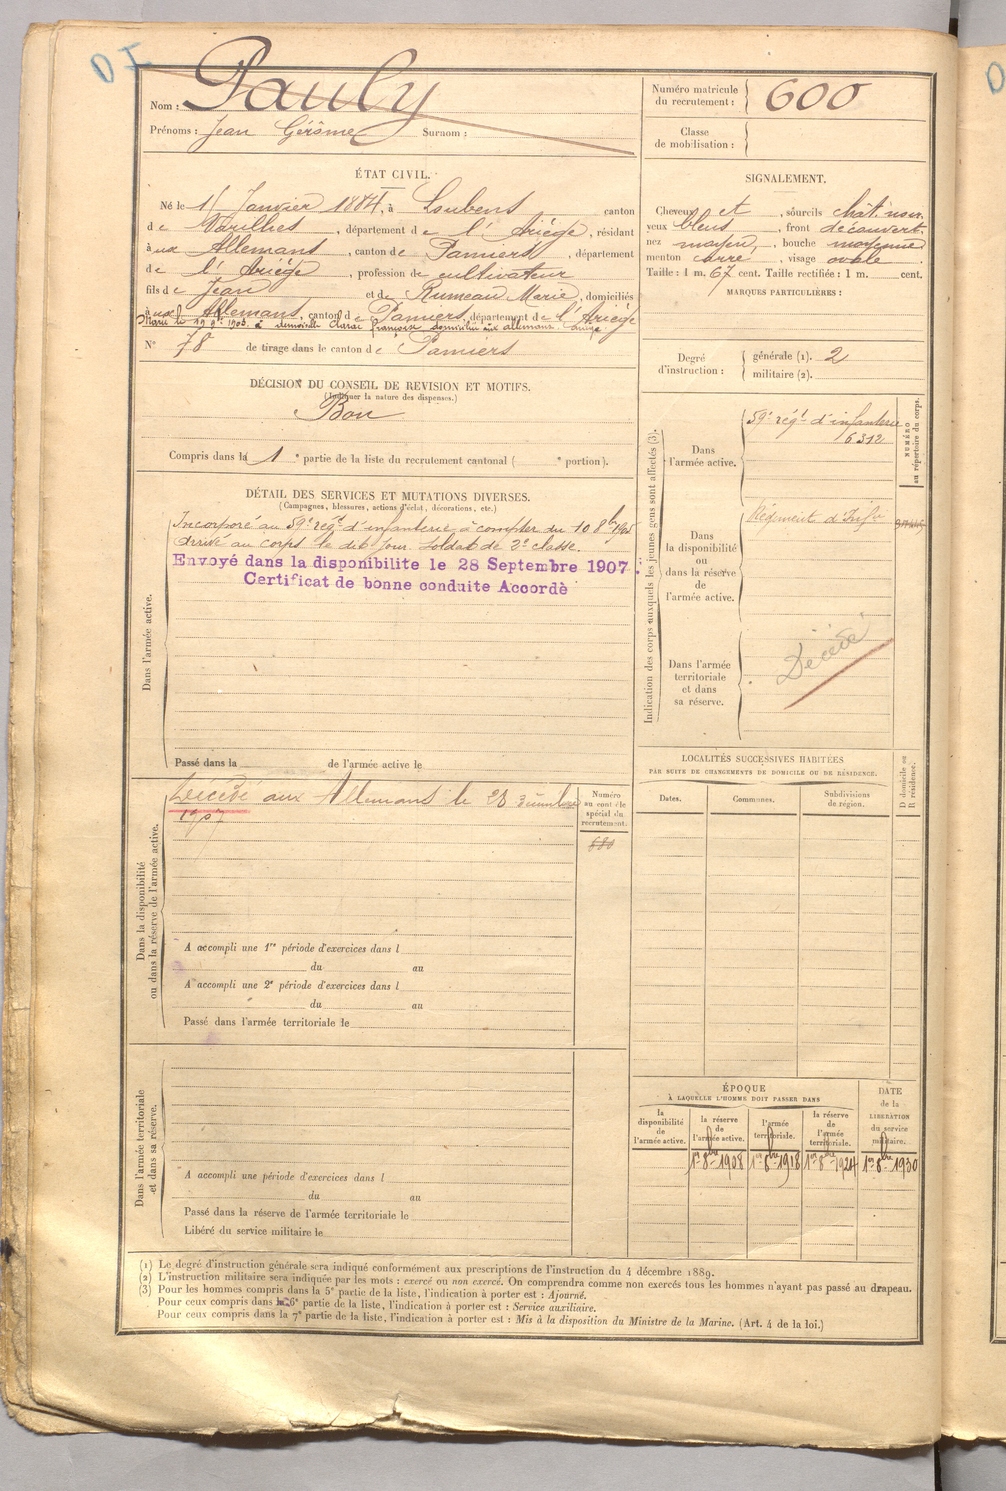 D I
Nom : Pauly
Prénoms : Jean Gérôme Surnom :
Numéro matricule du recrutement : 600
Classe de mobilisation :
ÉTAT CIVIL.
Né le 1 Janvier 1884, à Loubens canton
de Varilhes, département de l'Ariège, résidant
à ux Allemans, canton de Pamiers, département
de l'Ariège, profession de cultivateur
fils de Jean et de Rumeau Marie, domiciliés
à ux Allemans, canton de Pamiers, département de l'Ariège
Marié le à demoiselle françoise domiciliée aux allemans Ariège
N° 78 de tirage dans le canton de Pamiers
SIGNALEMENT.
Cheveux et , sourcils chât. noir,
yeux bleus , front découvert,
nez moyen, , bouche moyenne
menton carré , visage ovale .
Taille : 1 m. 67 cent. Taille rectifiée : 1 m. cent.
MARQUES PARTICULIÈRES :
Degré d'instruction : générale (1). 2
militaire (2).
DÉCISION DU CONSEIL DE REVISION ET MOTIFS.
(Indiquer la nature des dispenses.)
Bon
Compris dans la 1 e partie de la liste du recrutement cantonal ( e portion).
DÉTAIL DES SERVICES ET MUTATIONS DIVERSES.
(Campagnes, blessures, actions d'éclat, décorations, etc.)
Dans l'armée active.
Incorporé au 59e régt d'infanterie à compter du 10 8bre 1905
Arrivé au corps le dit jour. Soldat de 2e classe.
Envoyé dans la disponibilite le 28 Septembre 1907.
Certificat de bonne conduite Accordè
Passé dans la de l'armée active le
Indication des corps auxquels les jeunes gens sont affectés (3).
NUMÉRO au répertoire du corps.
Dans l'armée active.
59e régt d'infanterie
6312
Dans la disponibilité ou dans la réserve de l'armée active.
Régiment d'Infie
Dans l'armée territoriale et dans sa réserve.
Décédé
Dans la disponibilité ou dans la réserve de l'armée active.
Décédé aux Allemans le 28
1907
Numéro au contrôle spécial du recrutement.
680
A accompli une 1re période d'exercices dans l
du au
A accompli une 2e période d'exercices dans l
du au
Passé dans l'armée territoriale le
LOCALITÉS SUCCESSIVES HABITÉES
PAR SUITE DE CHANGEMENTS DE DOMICILE OU DE RÉSIDENCE.
Dates. Communes. Subdivisions de région. D domicile ou R résidence.
Dans l'armée territoriale et dans sa réserve.
A accompli une période d'exercices dans l
du au
Passé dans la réserve de l'armée territoriale le
Libéré du service militaire le
ÉPOQUE
À LAQUELLE L'HOMME DOIT PASSER DANS
la disponibilité de l'armée active.
la réserve de l'armée active.
l'armée territoriale.
la réserve de l'armée territoriale.
DATE de la LIBÉRATION du service militaire.
1er 8bre 1908 1er 8bre 1918 1er 8bre 1924 1er 8bre 1930
(1) Le degré d'instruction générale sera indiqué conformément aux prescriptions de l'instruction du 4 décembre 1889.
(2) L'instruction militaire sera indiquée par les mots : exercé ou non exercé. On comprendra comme non exercés tous les hommes n'ayant pas passé au drapeau.
(3) Pour les hommes compris dans la 5e partie de la liste, l'indication à porter est : Ajourné.
Pour ceux compris dans la 6e partie de la liste, l'indication à porter est : Service auxiliaire.
Pour ceux compris dans la 7e partie de la liste, l'indication à porter est : Mis à la disposition du Ministre de la Marine. (Art. 4 de la loi.)